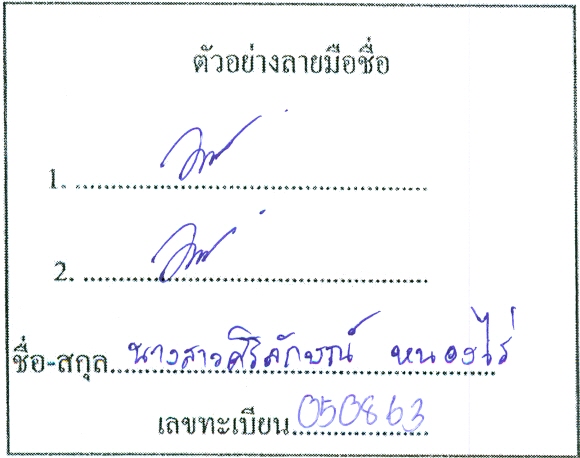 ตัวอย่างลายมือชื่อ
1.
2.
ชื่อ-สกุล นางสาวศิริลักษณ์ หนองไร่
เลขทะเบียน 050863